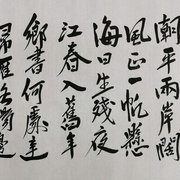 潮平兩岸闊
風正一帆懸
海日生殘夜
江春入舊年
鄉書何處達
歸雁洛陽邊